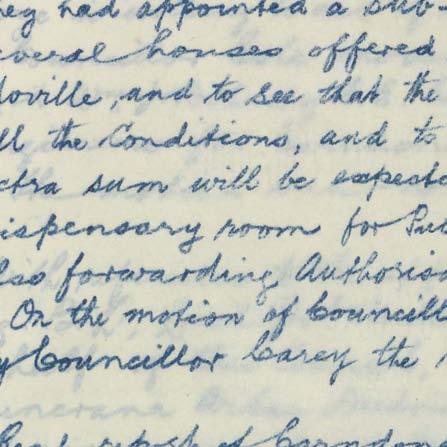 hey had appointed a sub-
everal houses offered
doville, and to see that the
ll the Conditions, and to
ctra sum will be expecte
ispensary room for Pu
lso forwarding Authoris
On the motion of Councill
y Councillor Carey the